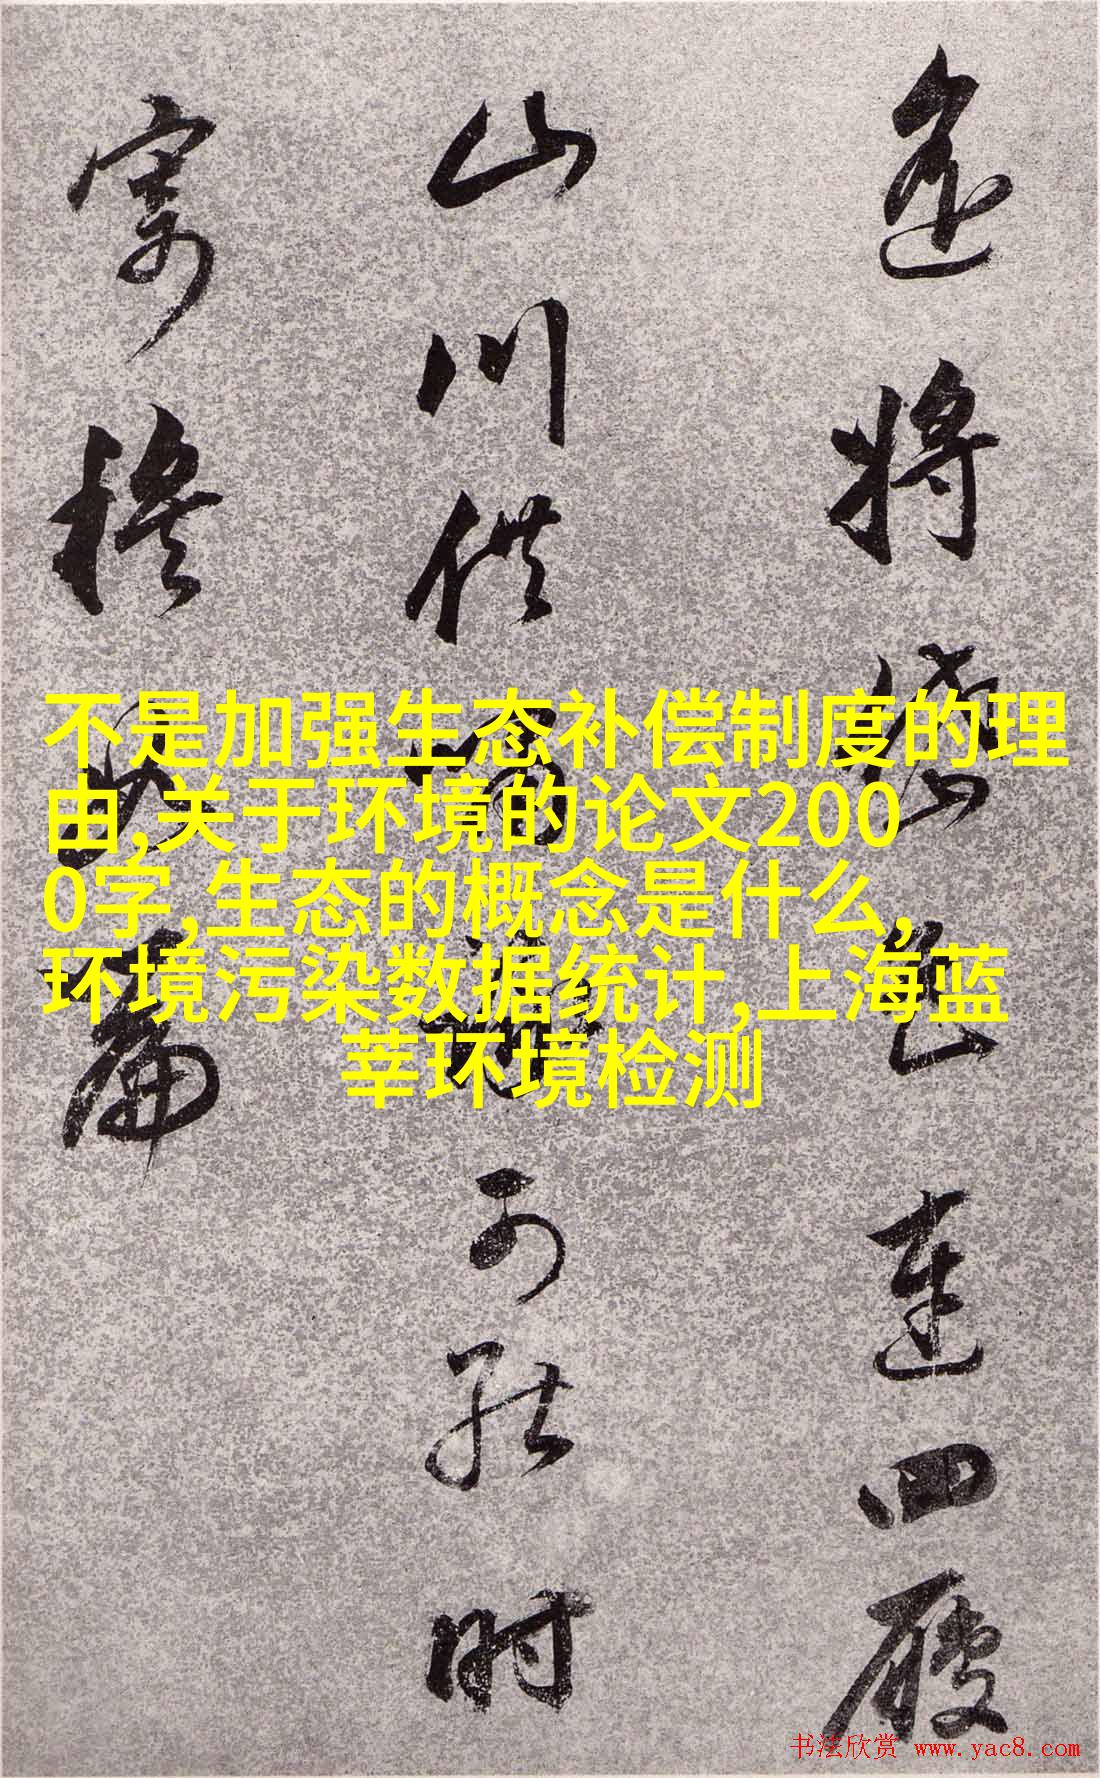 將色連四
山川供可能時
寄穆如篇
不是加强生态补偿制度的理
由,关于环境的论文200
0字,生态的概念是什么,
环境污染数据统计,上海蓝
莘环境检测
书法欣赏 www.yac8.com